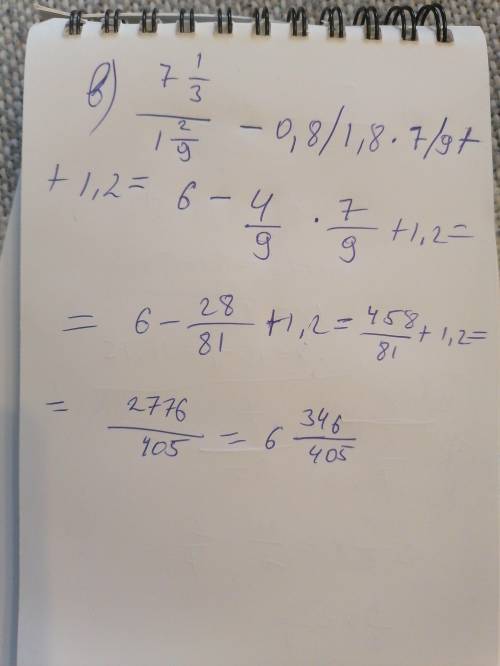 в) 7 1/3 / 1 2/9 - 0,8/1,8 · 7/9 +
+ 1,2 = 6 - 4/9 · 7/9 + 1,2 =
= 6 - 28/81 + 1,2 = 458/81 + 1,2 =
= 2776/405 = 6 346/405